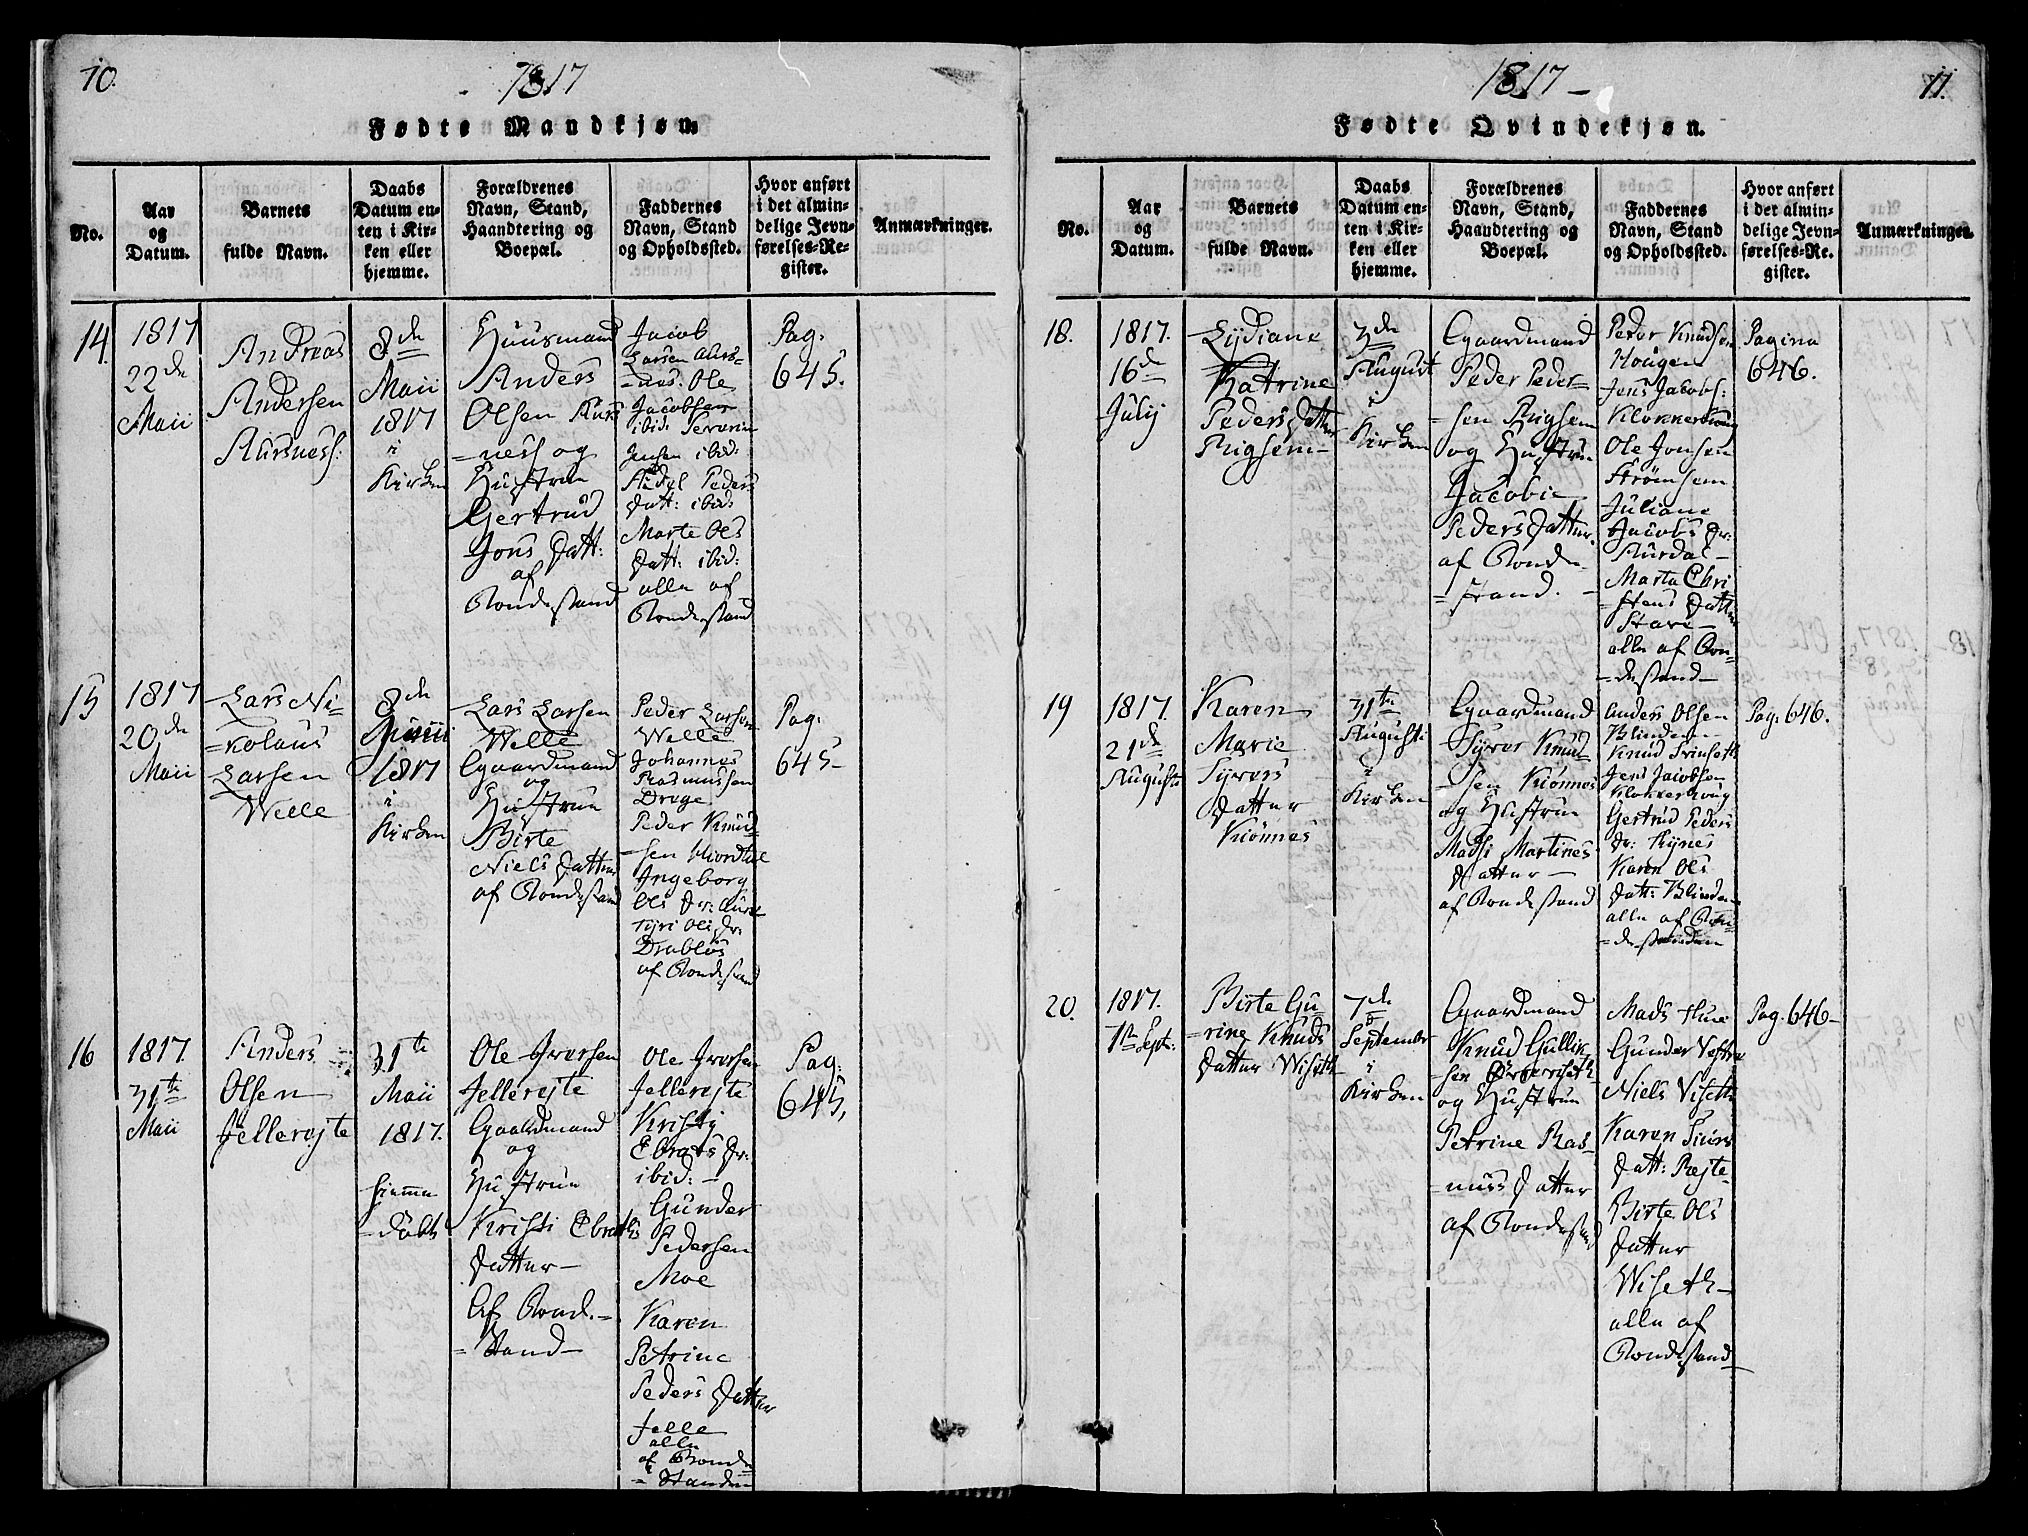 10.
1817
Fødte Mandkjøn.
No.
Aar
og
Datum.
Barnets
fulde Navn.
Daabs
Datum en-
ten i Kir-
ken eller
hjemme.
Forældrenes
Navn, Stand,
Haandtering og
Boepæl.
Faddernes
Navn, Stand
og Opholdssted.
Hvor anført
i det almin-
delige Jevn-
førelses-Re-
gister.
Anmærkninger.
14.
1817
22de
Maii
Andreas
Andersen
Aursness:
8de
Maii
1817
i
Kirken
Huusmand
Anders
Olsen Aurs
=ness og
Hustrue
Gertrud
Jons Datt:
af
Bondestand
Jacob
Larsen Aurs=
=nes. Ole
Jacobsen
ibid: Severin
Jensen ibid:
Adel Peders
Datt: ibid:
Marte Ols
Datt: ibid:
alle af
Bondestand
Pag:
645.
15
1817
20de
Maii
Lars Ni=
=kolaus
Larsen
Welle
8de
Junii
1817
i
Kirken
Lars Larsen
Welle
Gaardmand
og
Hustrue
Birte
Niels Datter
af Bondestand
Peder Larsen
Welle
Johannes
Rasmussen
Drage
Peder Knud=
=sen Hiordthol
Ingeborg
Ols Dr: Aure
Tyri Ols Dr:
Drabløs
af Bondestand
Pag:
645-
16
1817.
31te
Maii
Anders
Olsen
Jellerejte
31te
Maii
1817.
hiemme
=døbt
Ole Iversen
Jellerejte
Gaardmand
og
Hustrue
Kristi Ebrahts
Datter-
Af Bonde=
=stand-
Ole Iversen
Jellerejte
Kristi
Ebrats Dr:
ibid: -
Gunder
Pedersen
Moe
Karen
Petrine
Peders Datter
Jelle
alle
af Bonde=
=standen
Pag:
645,
1817-
11.
Fødte Qvindekjøn.
No.
Aar
og
Datum.
Barnets
fulde Navn.
Daabs
Datum en-
ten i Kir-
ken eller
hjemme.
Forældrenes
Navn, Stand,
Haandtering og
Boepæl.
Faddernes
Navn, Stand
og Opholdssted.
Hvor anført
i det almin-
delige Jevn-
førelses-Re-
gister.
Anmærkninger.
18.
1817.
16de
Julij
Lydiane
Katrine
Pedersdatter
Rigsem-
3de
August
i
Kirken
Gaardmand
Peder Peder=
=sen Rigsem
og Hustrue
Jacobie
Pedersdatter.
af Bonde=
=stand.-
Peder Knudsen
Hougen
Jens Jacobs:
Klokkerhoug
Ole Jonsen
Strømhem
Juliane
Jacobs Dr:
Aurdal-
Marta Chri
=stens Datter
Stave-
alle af Bon=
=destand-
Pagina
646.
19
1817.
21de
Augusti
Karen
Marie
Syvers
Datter
Kiønnes
31te
Augusti
i
Kirken
Gaardmand
Syver Knud=
=sen Kiønnes
og Hustrue
Madsi Martines
Datter-
af Bondestand
Anders Olsen
Blindem
Knud Svinseth
Jens Jacobsen
Klokkerhoug
Gertrud Peders
Dr: Rynes
Karen Ols
Datt: Blindem
alle af Bon=
=destanden
Pag. 646.
20.
1817.
1te Sept:
Birte Gu=
=rine Knuds
Datter Wiseth
7de
September
i
Kirken
Gaardmand
Knud Gullik
=sen
og Hustrue
Petrine Ras=
=muss Datter
af Bondestand
Mads Hue
Gunder Vestre
Niels Viseth
Karen Siurs
Datt: Rejte-
Birte Ols
Datter
Wiseth-
alle af
Bondestand-
Pag. 646-